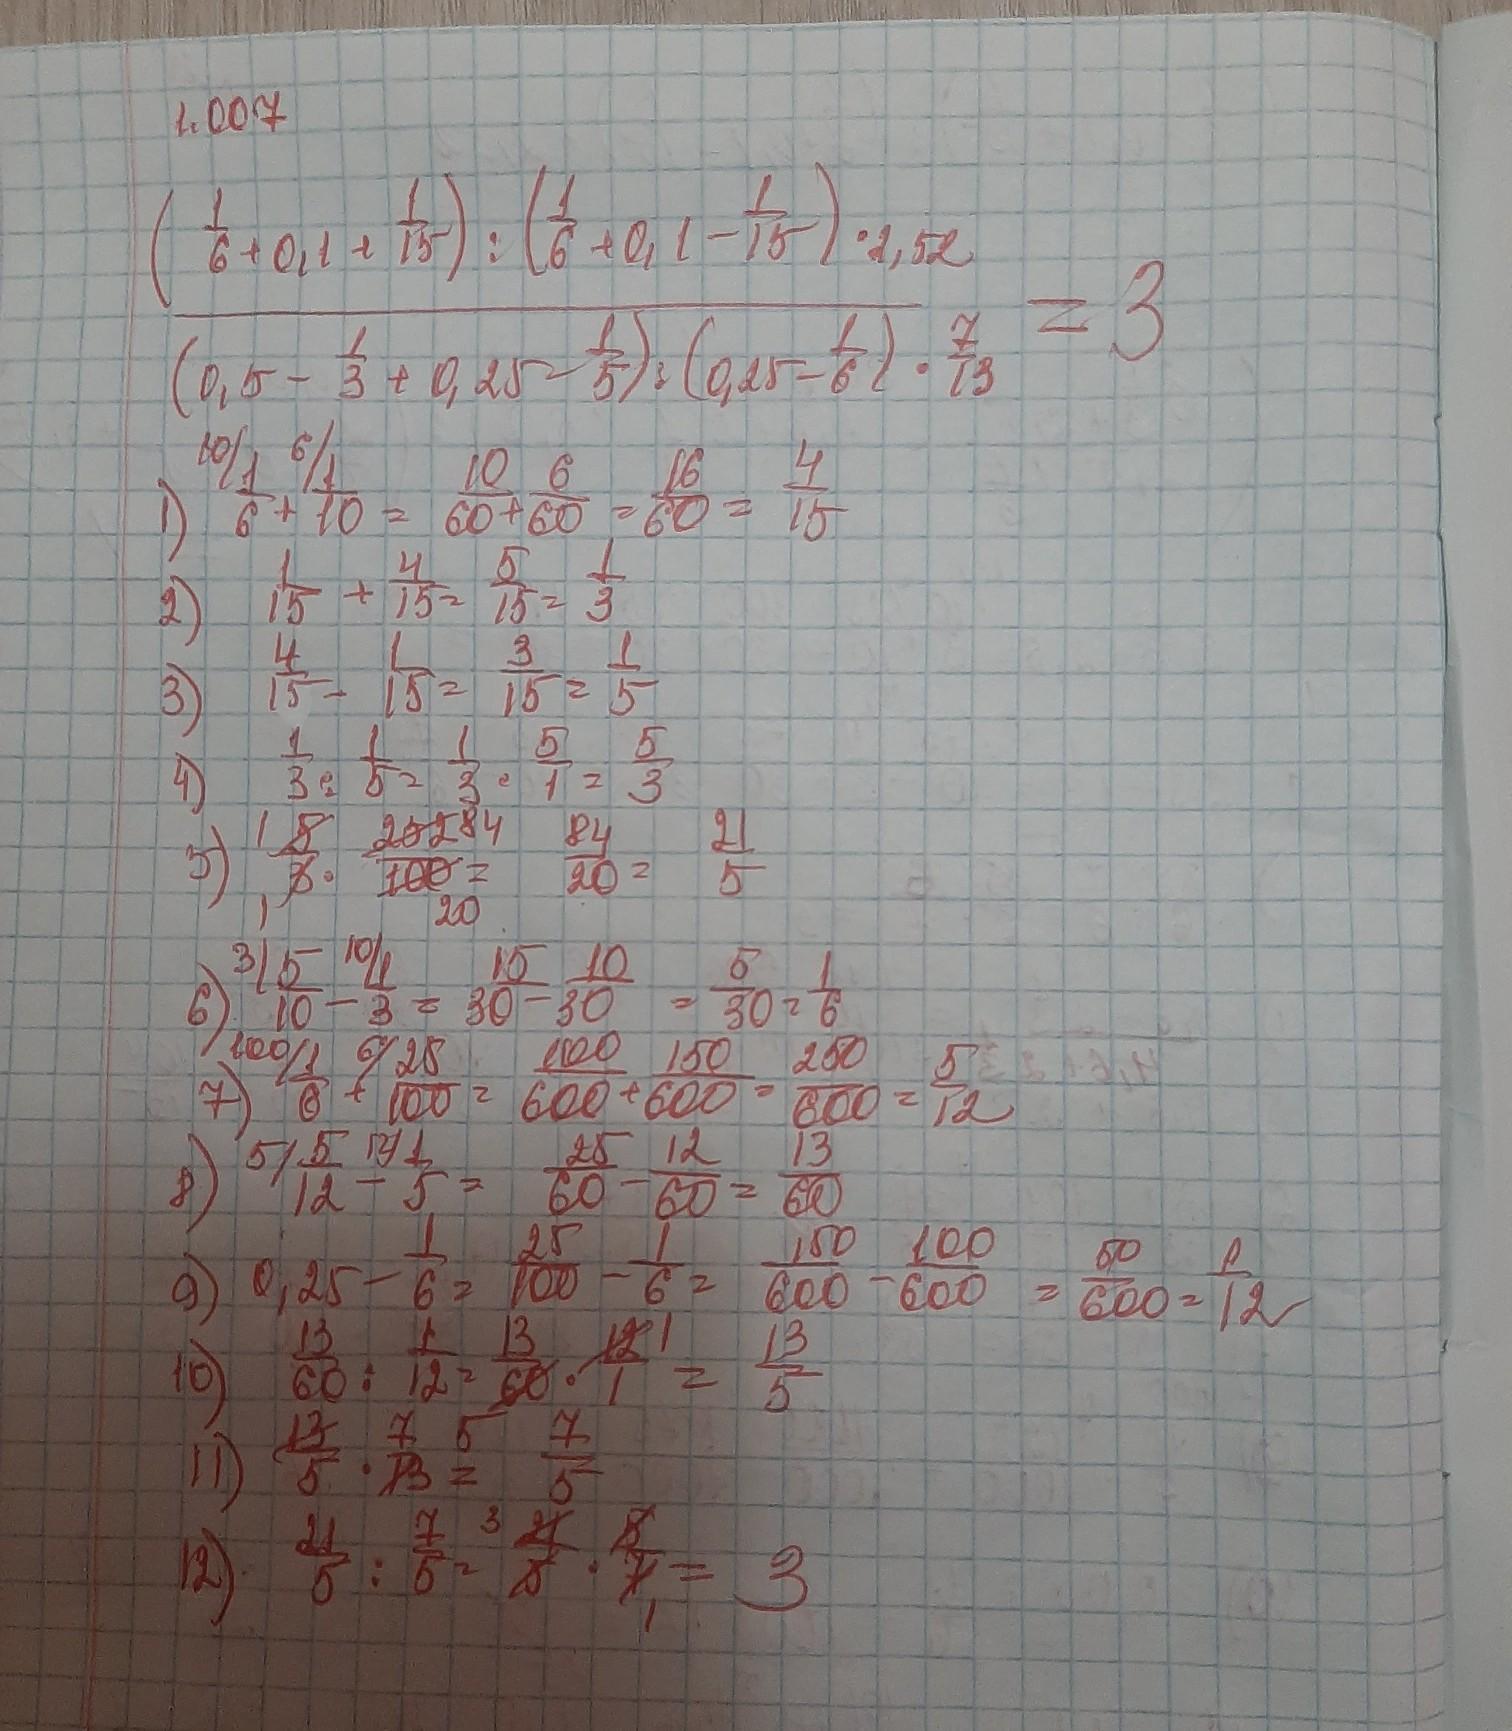 1.007
(1/6 + 0,1 + 1/15) : (1/6 + 0,1 - 1/15) · 2,52
(0,5 - 1/3 + 0,25 - 1/5) : (0,25 - 1/6) · 7/13 = 3
1) 10/ 1/6 + 6/ 1/10 = 10/60 + 6/60 = 16/60 = 4/15
2) 1/15 + 4/15 = 5/15 = 1/3
3) 4/15 - 1/15 = 3/15 = 1/5
4) 1/3 : 1/5 = 1/3 · 5/1 = 5/3
5) 1 5/3 1 · 252/100 84 20 = 84/20 = 21/5
6) 3/ 5/10 - 10/ 1/3 = 15/30 - 10/30 = 5/30 = 1/6
7) 100/ 1/6 + 6/ 25/100 = 100/600 + 150/600 = 250/600 = 5/12
8) 5/ 5/12 - 12/ 1/5 = 25/60 - 12/60 = 13/60
9) 0,25 - 1/6 = 25/100 - 1/6 = 150/600 - 100/600 = 50/600 = 1/12
10) 13/60 : 1/12 = 13/60 5 · 12/1 1 = 13/5
11) 13/5 · 7/13 = 7/5
12) 21/5 : 7/5 = 3 21/5 · 5/7 1 = 3